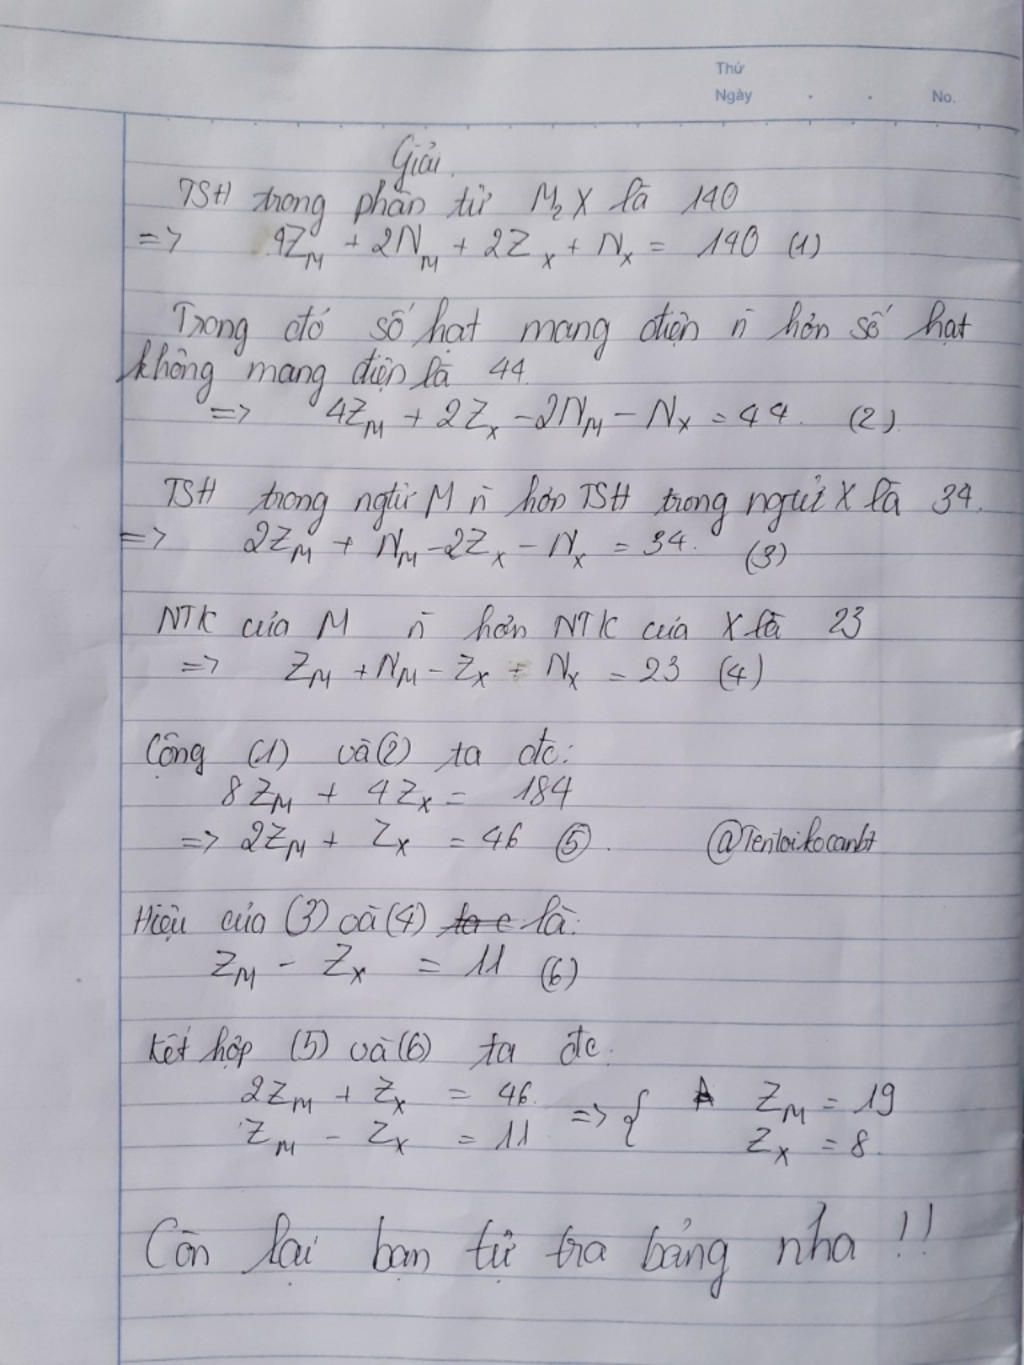 Thứ
Ngày . . No.
Giải.
TSH trong phân tử M₂X là 140
=> 4Z_M + 2N_M + 2Z_X + N_X = 140 (1)
Trong đó số hạt mang điện n̄ hơn số hạt
không mang điện là 44.
=> 4Z_M + 2Z_X - 2N_M - N_X = 44. (2)
TSH trong ngtử M n̄ hơn TSH trong ngtử X là 34.
=> 2Z_M + N_M - 2Z_X - N_X = 34. (3)
NTK của M n̄ hơn NTK của X là 23
=> Z_M + N_M - Z_X - N_X = 23 (4)
Cộng (1) và (2) ta đc:
8Z_M + 4Z_X = 184
=> 2Z_M + Z_X = 46 (5). @Tenloikocanbt
Hiệu của (3) và (4) là:
Z_M - Z_X = 11 (6)
Kết hợp (5) và (6) ta đc.
2Z_M + Z_X = 46.
Z_M - Z_X = 11
=> { Z_M = 19
Z_X = 8.
Còn lại bạn tự tra bảng nha !!